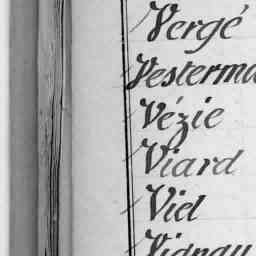 Vergé
Vesterma
Vézie
Viard
Viel
Vignau